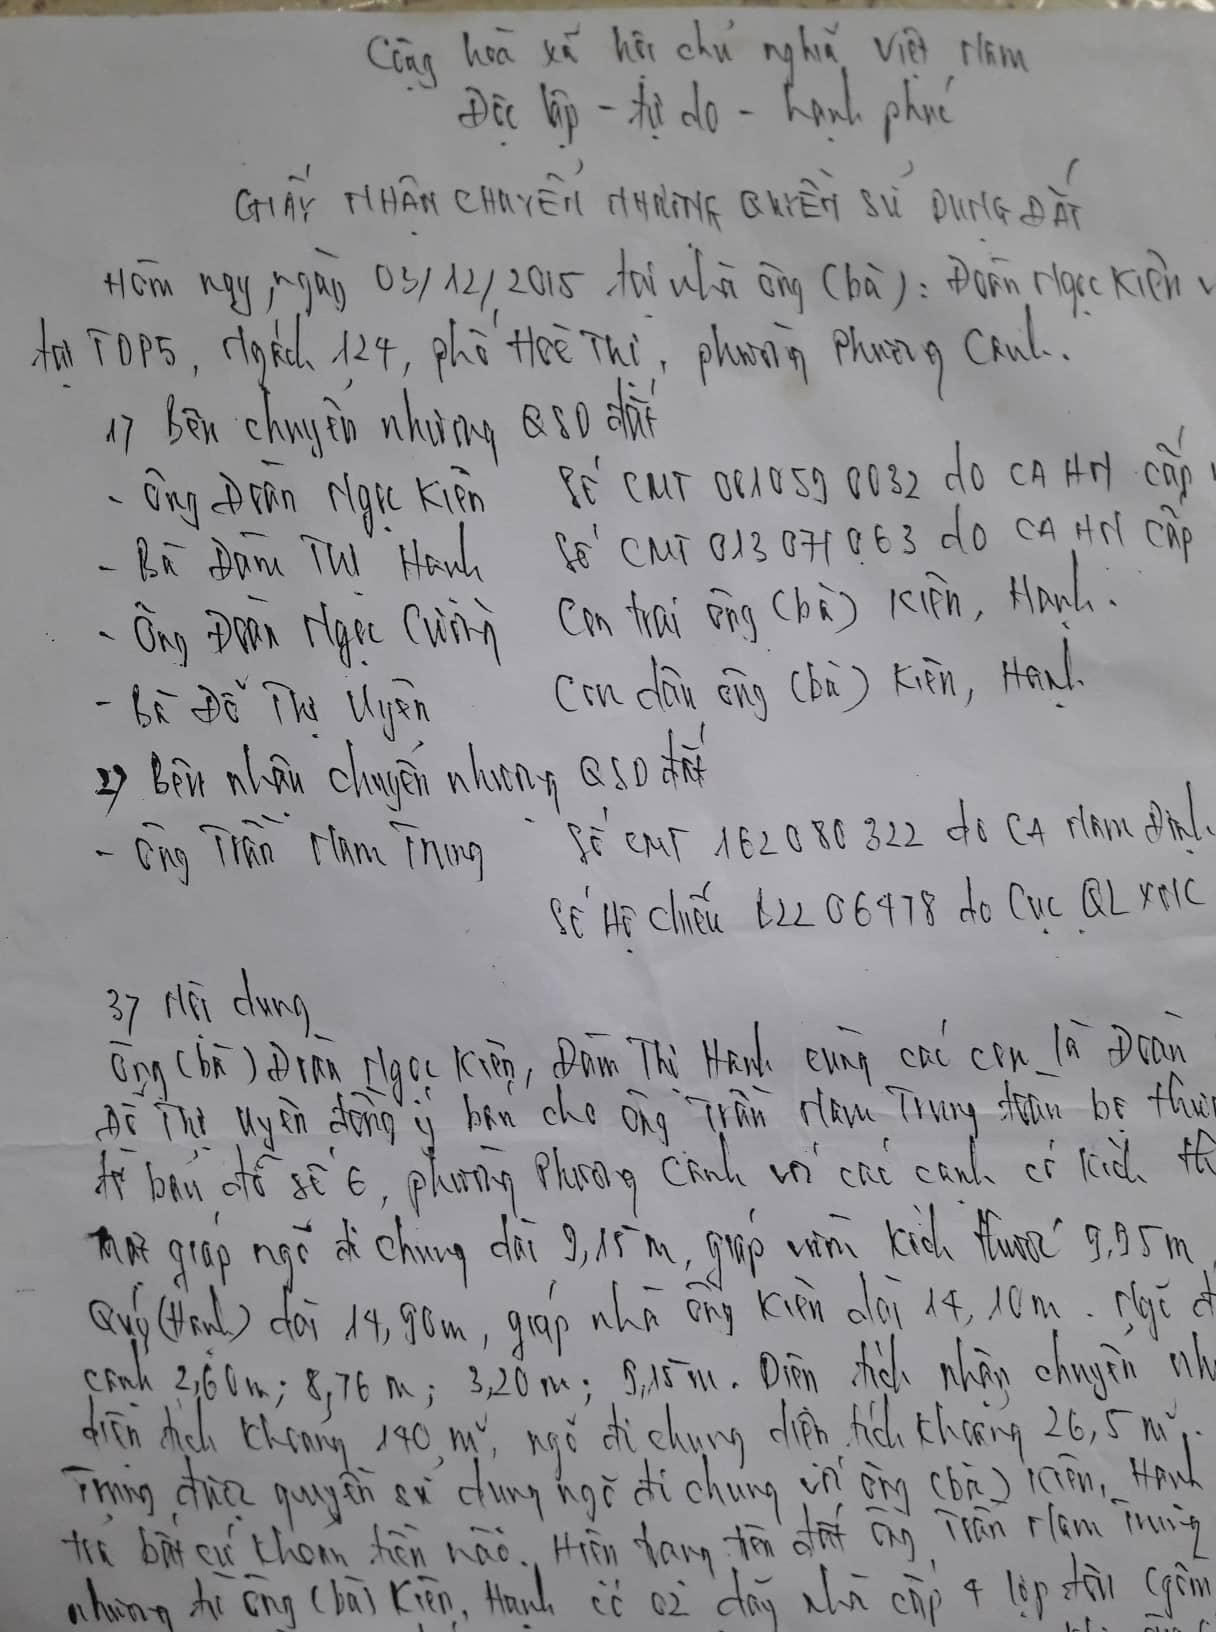 Cộng hoà xã hội chủ nghĩa Việt Nam
Độc lập - tự do - hạnh phúc
GIẤY NHẬN CHUYỂN NHƯỢNG QUYỀN SỬ DỤNG ĐẤT
Hôm nay, ngày 03/12/2015 tại nhà ông (bà): Đoàn Ngọc Kiên
tại TDP5, Ngách 124, phố Hoè Thị, phường Phương Canh.
1) Bên chuyển nhượng QSD đất
- Ông Đoàn Ngọc Kiên Số CMT 0010590032 do CA HN cấp
- Bà Đàm Thị Hạnh Số CMT 013071063 do CA HN cấp
- Ông Đoàn Ngọc Cường Con trai ông (bà) Kiên, Hạnh.
- Bà Đỗ Thị Uyên Con dâu ông (bà) Kiên, Hạnh
2) Bên nhận chuyển nhượng QSD đất
- Ông Trần Nam Trung Số CMT 162080322 do CA Nam Định
Số Hộ chiếu 2206478 do Cục QL XNC
3) Nội dung
Ông (bà) Đoàn Ngọc Kiên, Đàm Thị Hạnh cùng các con là Đoàn
Đỗ Thị Uyên đồng ý bán cho ông Trần Nam Trung toàn bộ
tờ bản đồ số 6, phường Phương Canh với các cạnh có kích
mặt giáp ngõ đi chung dài 9,15m, giáp kích thước 9,95m
Quý (Hạnh) dài 14,90m, giáp nhà ông Kiên dài 14,10m. Ngõ đ
cạnh 2,60m; 8,76m; 3,20m; 9,15m. Diện tích nhận chuyển nh
diện tích khoảng 140 m², ngõ đi chung diện tích khoảng 26,5 m².
Trung được quyền sử dụng ngõ đi chung với ông (bà) Kiên, Hạnh
trả bất cứ khoản tiền nào. Hiện trạng trên đất ông Trần Nam Trung
nhượng từ ông (bà) Kiên, Hạnh có 02 dãy nhà cấp 4 lợp tôn (gồm